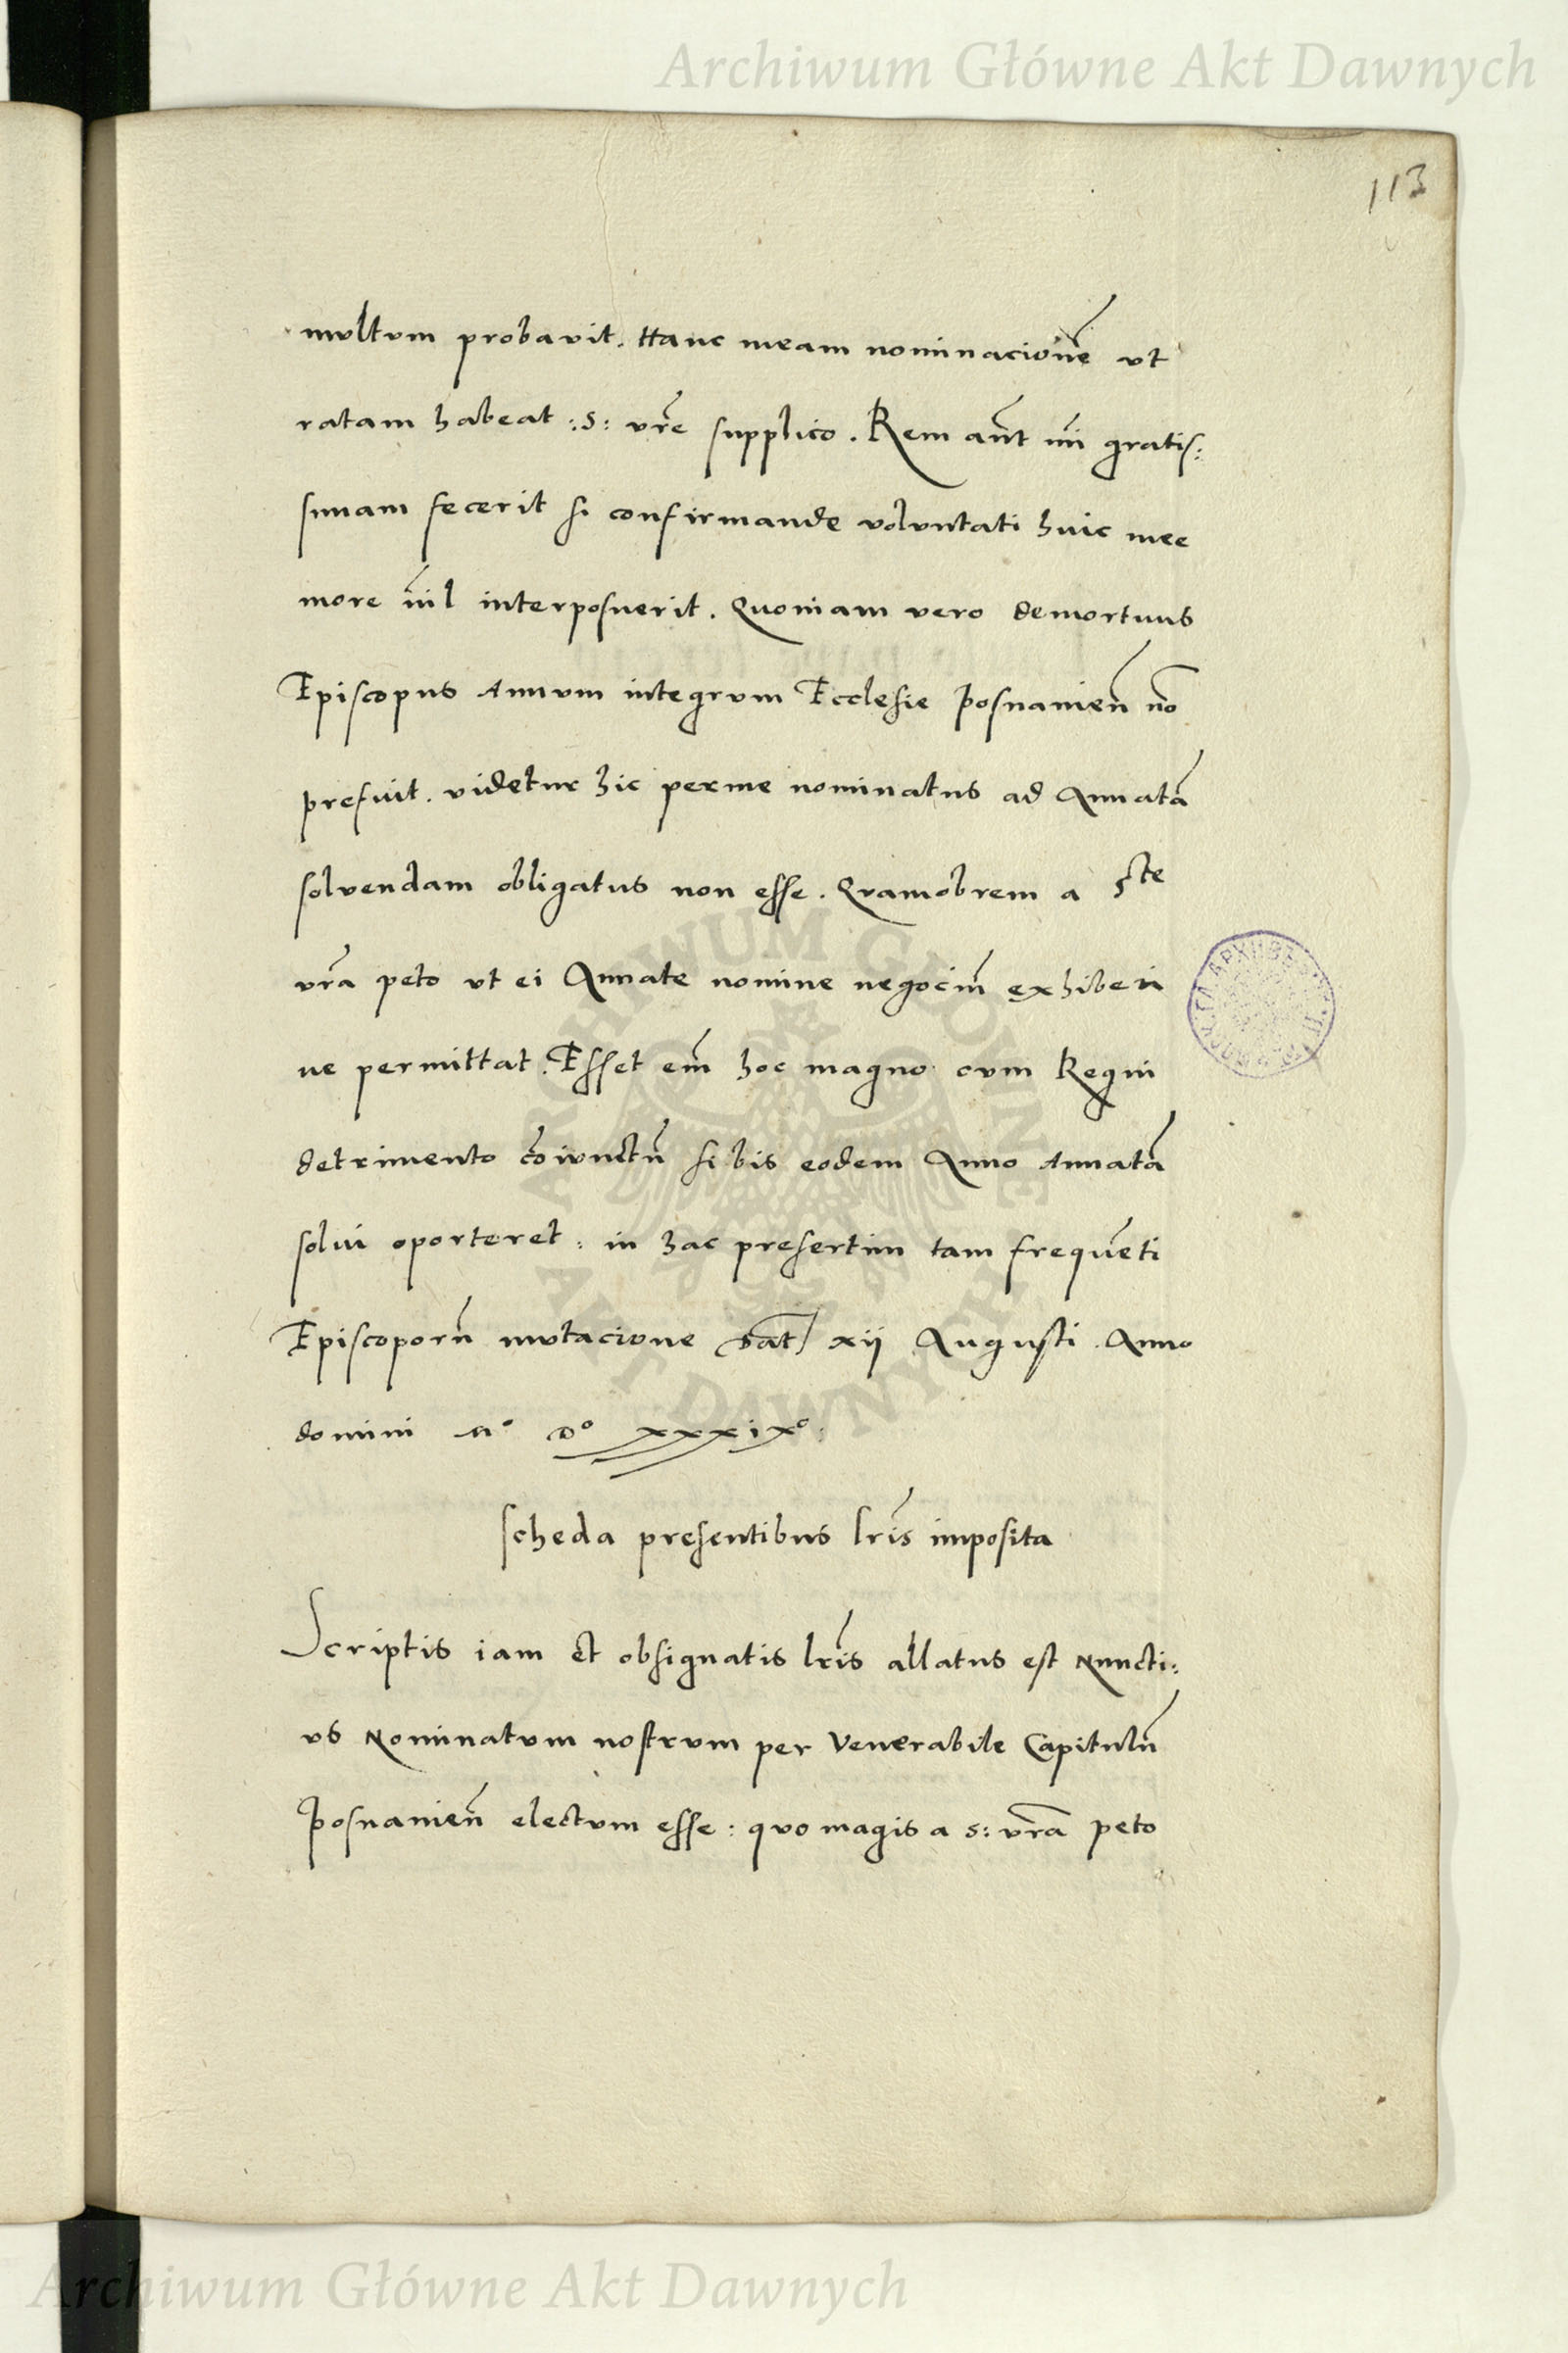 Archiwum Główne Akt Dawnych
113
multum probavit. Hanc meam nominacionē ut
ratam habeat :S: vr̄e supplico. Rem aūt mī gratis:
simam fecerit si confirmande voluntati huic mee
more nīl interposuerit. Quoniam vero demortuus
Episcopus Annum integrum Ecclesie Posnanieñ nō
prefuit. videtur hic per me nominatus ad Annatā
solvendam obligatus non esse. Quamobrem a Ste
vr̄a peto ut ei Annate nomine negociū exhiberi
ne permittat. Esset em̄ hoc magno cum Regni
detrimento cōiunctū si bis eodem Anno Annatā
solui oporteret: in hac presertim tam frequēti
Episcoporū mutacione Dat̄ xii Augusti Anno
domini Mº Dº xxxixº:
Scheda presentibus lr̄is imposita
Scriptis iam et obsignatis lr̄is allatus est Nuncti:
us Nominatum nostrum per Venerabile Capitulū
Posnanieñ electum esse: quo magis a S: vr̄a peto
ARCHIWUM GŁÓWNE AKT DAWNYCH
Archiwum Główne Akt Dawnych